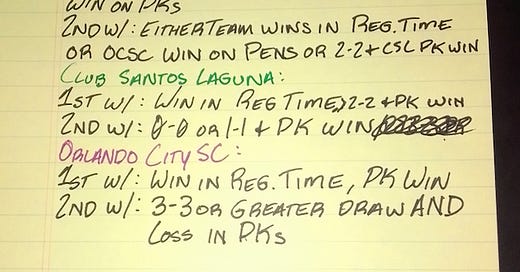 WIN ON PKs
2ND W/: EITHER TEAM WINS IN REG. TIME
OR OCSC WIN ON PENS OR 2-2 + CSL PK WIN
CLUB SANTOS LAGUNA:
1ST W/: WIN IN REG TIME, ≥2-2 + PK WIN
2ND W/: 0-0 OR 1-1 + PK WIN
ORLANDO CITY SC:
1ST W/: WIN IN REG. TIME, PK WIN
2ND W/: 3-3 OR GREATER DRAW AND
LOSS IN PKs